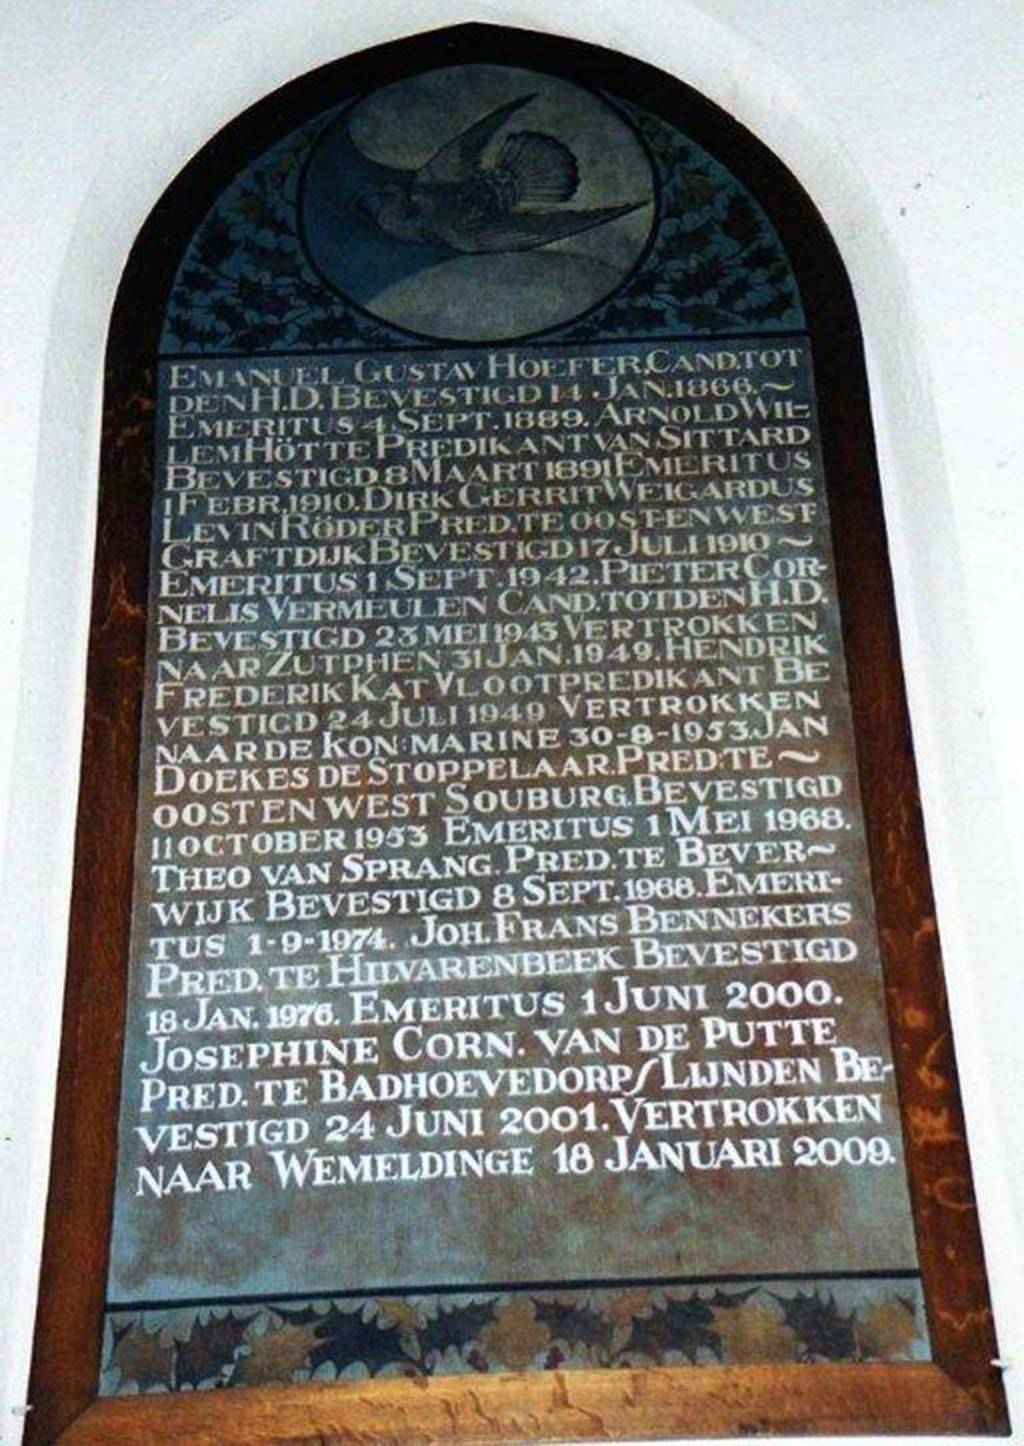 EMANUEL GUSTAV HOEFER.CAND.TOT
DEN H.D. BEVESTIGD 14 JAN.1866.~
EMERITUS 4 SEPT.1889. ARNOLD WIL-
LEM HÖTTE PREDIKANT VAN SITTARD
BEVESTIGD 8 MAART 1891 EMERITUS
1 FEBR.1910. DIRK GERRIT WEIGARDUS
LEVIN RÖDER PRED. TE OOST-EN WEST
GRAFTDIJK BEVESTIGD 17 JULI 1910 ~
EMERITUS 1 SEPT. 1942. PIETER COR-
NELIS VERMEULEN CAND. TOT DEN H.D.
BEVESTIGD 23 MEI 1943 VERTROKKEN
NAAR ZUTPHEN 31 JAN.1949. HENDRIK
FREDERIK KAT VLOOTPREDIKANT BE
VESTIGD 24 JULI 1949 VERTROKKEN
NAAR DE KON: MARINE 30-8-1953. JAN
DOEKES DE STOPPELAAR. PRED: TE ~
OOST EN WEST SOUBURG. BEVESTIGD
11 OCTOBER 1953 EMERITUS 1 MEI 1968.
THEO VAN SPRANG. PRED. TE BEVER~
WIJK BEVESTIGD 8 SEPT. 1968. EMERI-
TUS 1-9-1974. JOH. FRANS BENNEKERS
PRED. TE HILVARENBEEK BEVESTIGD
18 JAN. 1976. EMERITUS 1 JUNI 2000.
JOSEPHINE CORN. VAN DE PUTTE
PRED. TE BADHOEVEDORP/LIJNDEN BE-
VESTIGD 24 JUNI 2001. VERTROKKEN
NAAR WEMELDINGE 18 JANUARI 2009.